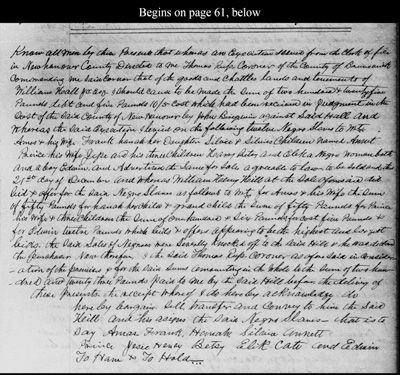 Begins on page 61, below
Know all men by these Presents that whereas an Execution Issued from the Clerk of
in Newhanover County Directed to me Thomas Rufs Coroner of the County of Brunswick
Commanding me said Coroner that of the goods and Chattles lands and tenements of
William Hall I should cause to be made the Sum of two hundred & twenty five
Pounds debt and five Pounds 10/5 Cost which had been in Judgment in the
Court of the said County of New hanover by John against Said Hall and
Whereas the said Execution levied on the following twelve Negro Slaves to Wit
Amos & his wife Frank hannah her Daughter Silvia & Silvias Children Named
Prince his Wife and his three Children Betsy and a Negro woman
and a boy Edwin and Advertised the Same for Sale agreeable to law to be
21st day of December and Whereas William Hill at the
bid & offer for the said Negro Slaves as follows to Wit for Amos & his Wife the Sum
of fifty Pounds for hannah her Child & grand Child the Sum of fifty Pounds for Prince
his Wife & three Children the Sum of One hundred & Six Pounds five Pounds &
for Edwin twelve Pounds which bids & offers appearing to be the highest and
bids. the Said Sales of Negroes were knocked off to the said Hill & he was declared
the Purchaser Now therefore I the Said Thomas Rufs Coroner as aforesaid in Consider-
-ation of the premises & for the Said Sums in the whole to the Sum of two hun-
-dred and twenty three Pounds Paid to me by the Said Hill before the delivery of
these Presents the receipt whereof I do hereby acknowledge do
hereby bargain Sell transfer and Convey to him the Said
Hill and his assigns the Said Negro Slaves that is to
Say Amos Frank Hannah Silvia Annett
Prince Betsy Cate and Edwin
To Have & To Hold